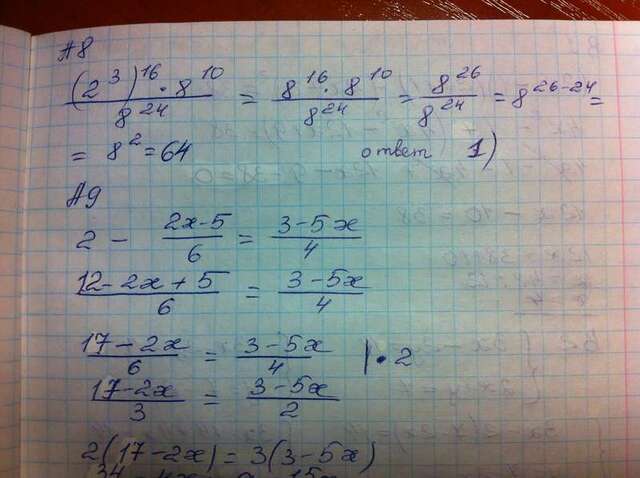 А8
(2^3)^16 · 8^10 / 8^24 = 8^16 · 8^10 / 8^24 = 8^26 / 8^24 = 8^26-24 =
= 8^2 = 64 ответ 1)
А9
2 - 2x-5 / 6 = 3-5x / 4
12-2x+5 / 6 = 3-5x / 4
17-2x / 6 = 3-5x / 4 | · 2
17-2x / 3 = 3-5x / 2
2(17-2x) = 3(3-5x)